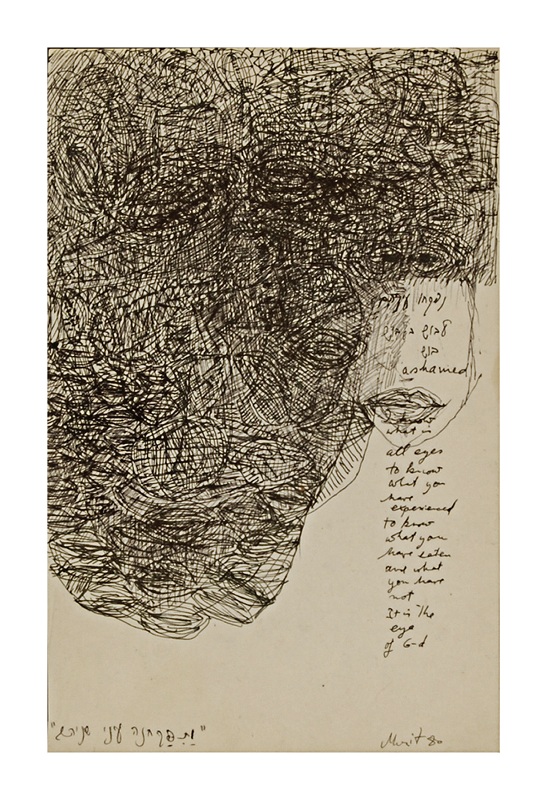 ashamed
know
what is
all eyes
to know
what you
have
experienced
to know
what you
have eaten
and what
you have
not
It is the
eye
of G-d
"וַתִּפָּקַחְנָה עיני שניהם"
80